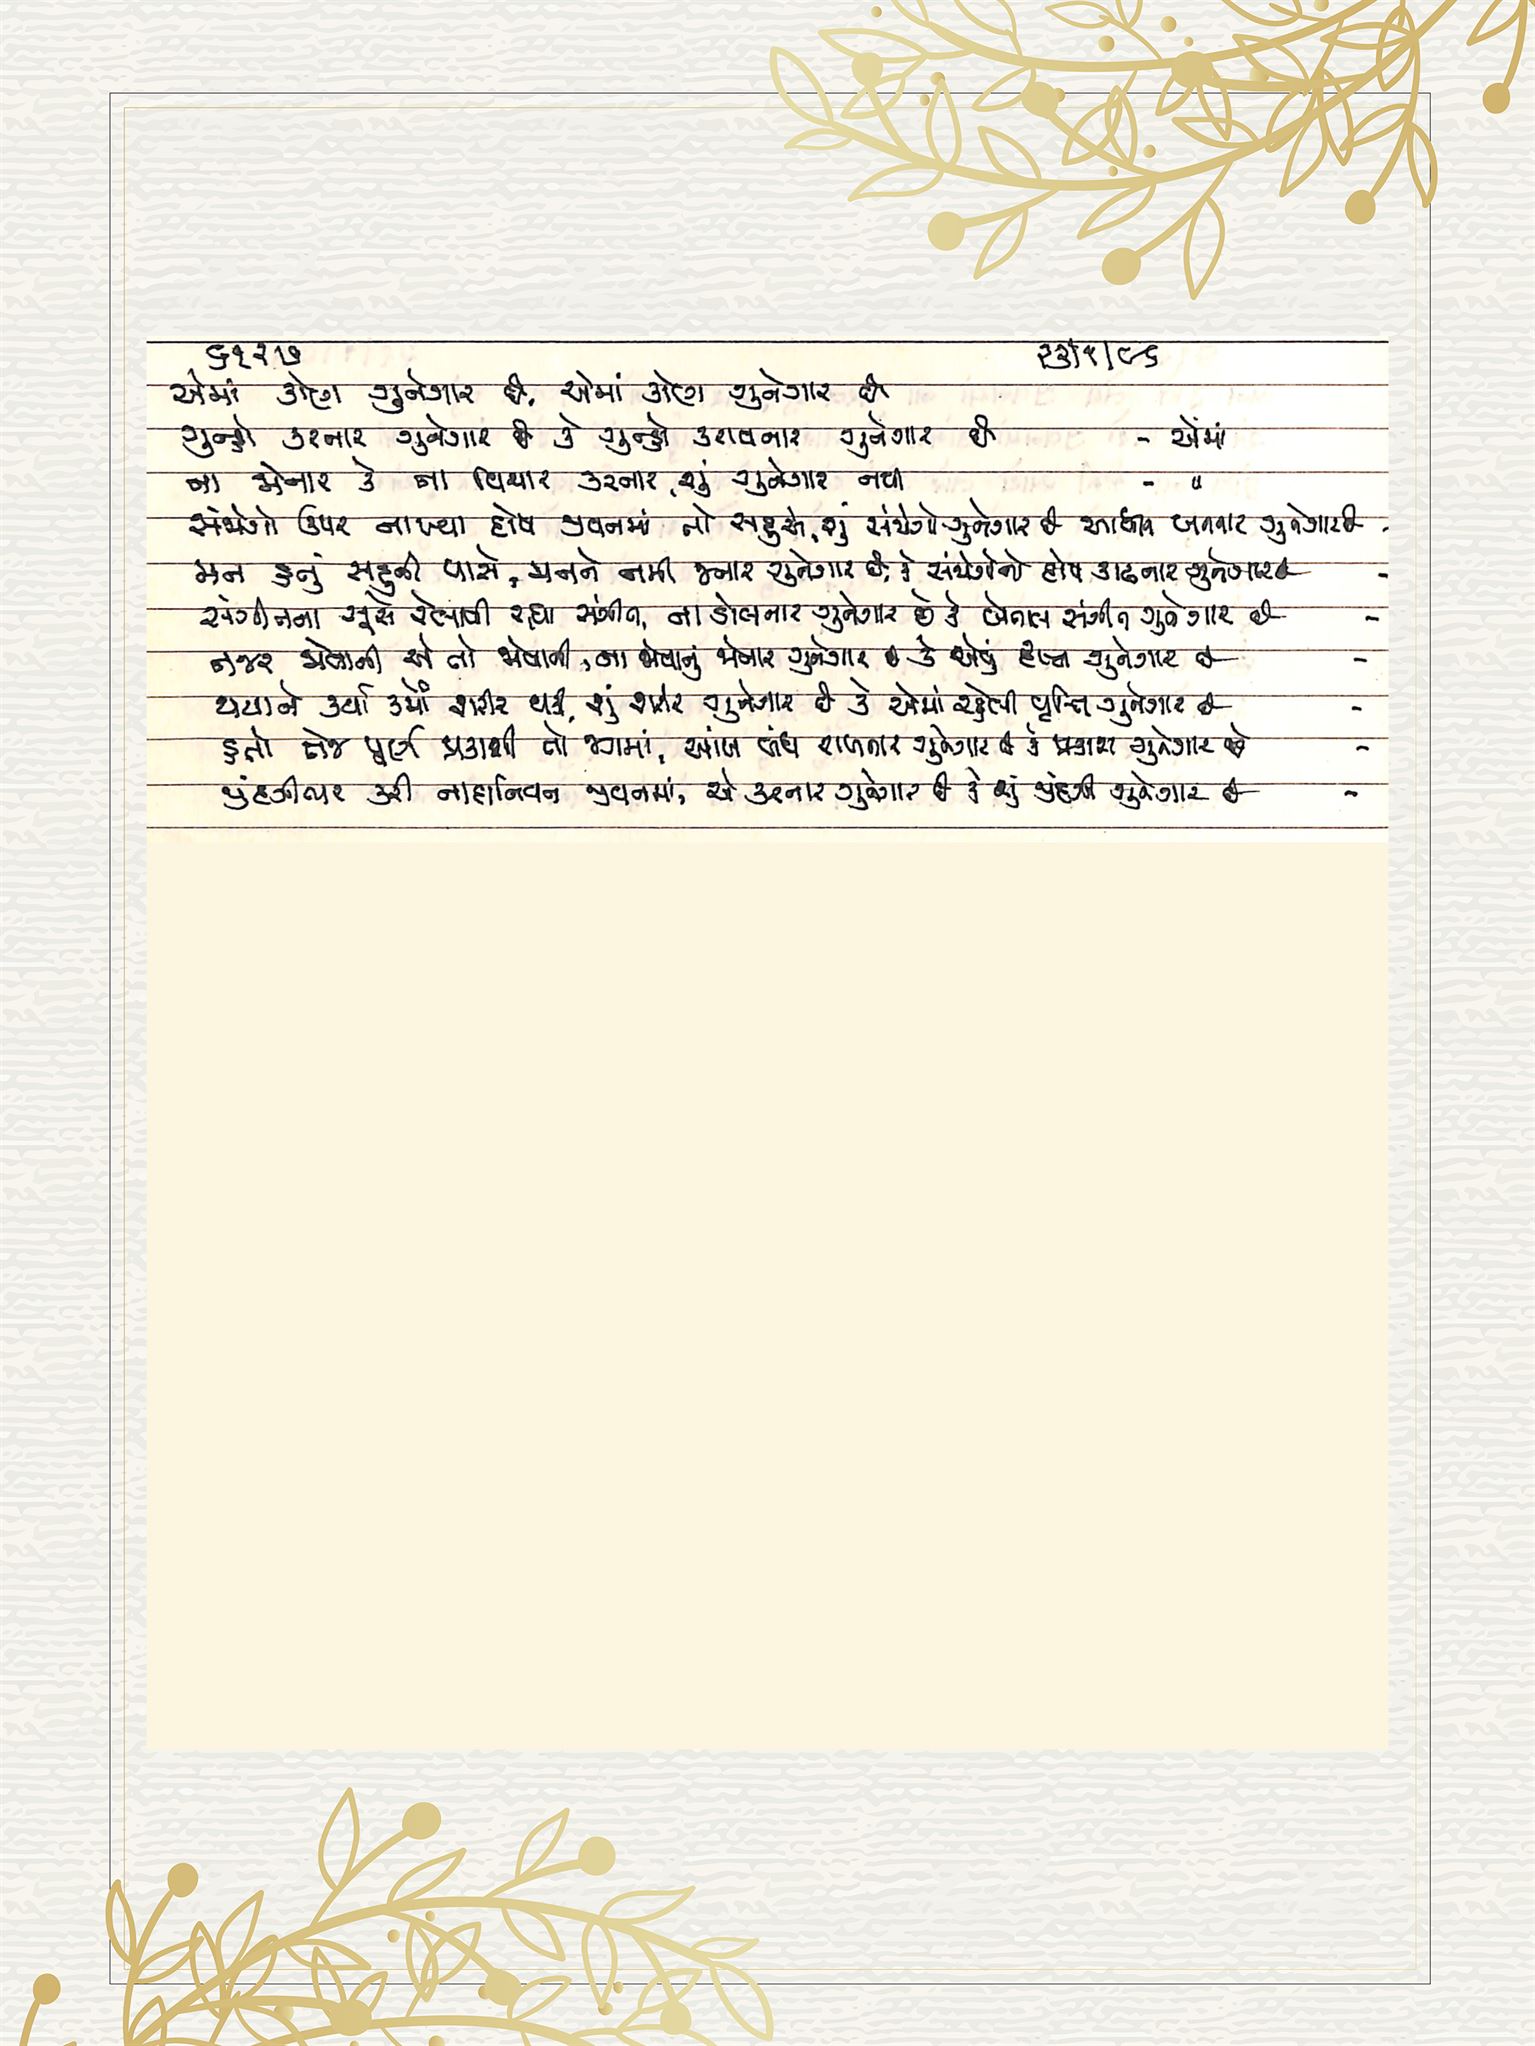 ૬૧૨૭ ૨૩/૧/૮૬
એમાં કોણ ગુનેગાર છે, એમાં કોણ ગુનેગાર છે
ગુન્હો કરનાર ગુનેગાર છે કે ગુન્હો કરાવનાર ગુનેગાર છે - એમાં
ના જોનાર કે ના વિચાર કરનાર, શું ગુનેગાર નથી - "
સંજોગો ઉપર નાખ્યા દોષ જીવનમાં તો સહુએ, શું સંજોગો ગુનેગાર છે આધીન બનનાર ગુનેગાર છે -
મન હતું સહુની પાસે, મનને નમી જનાર ગુનેગાર છે, કે સંજોગોનો દોષ કાઢનાર ગુનેગાર છે -
સંગીતના સૂરો રેલાવી રહ્યા સંગીત, ના ડોલનાર ગુનેગાર છે કે બેતાલ સંગીત ગુનેગાર છે -
નજર જોવાની એ તો જોવાની, ના જોવાનું જોનાર ગુનેગાર છે કે એવું દૃશ્ય ગુનેગાર છે -
થયા ને કર્યા કર્મો શરીર થકી, શું શરીર ગુનેગાર છે કે એમાં રહેલી વૃત્તિ ગુનેગાર છે -
હતો તેજ પૂર્ણ પ્રકાશી તો જગમાં, આંખ બંધ રાખનાર ગુનેગાર છે કે પ્રકાશ ગુનેગાર છે -
જીંદગીભર કરી નાદાનિયત જીવનમાં, એ કરનાર ગુનેગાર છે કે શું જીંદગી ગુનેગાર છે -